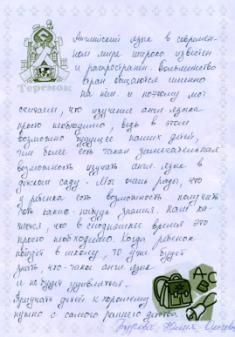 Английский язык в современ-
ном мире широко известен
и распространен. Большинство
стран общаются именно
на нём. И поэтому мы
Теремок
считаем, что изучение англ. языка
просто необходимо, ведь в этом
возможно будущее наших детей,
тем более есть такая замечательная
возможность изучать англ. язык в
детском саду. Мы очень рады, что
у ребёнка есть возможность получать
хоть какие-нибудь знания. Нам ка-
жется, что в сегодняшнее время это
просто необходимо. Когда ребенок
пойдет в школу, то уже будет
знать, что такое англ. язык
и не будет удивляться.
Приучать детей к хорошему
нужно с самого раннего детства.